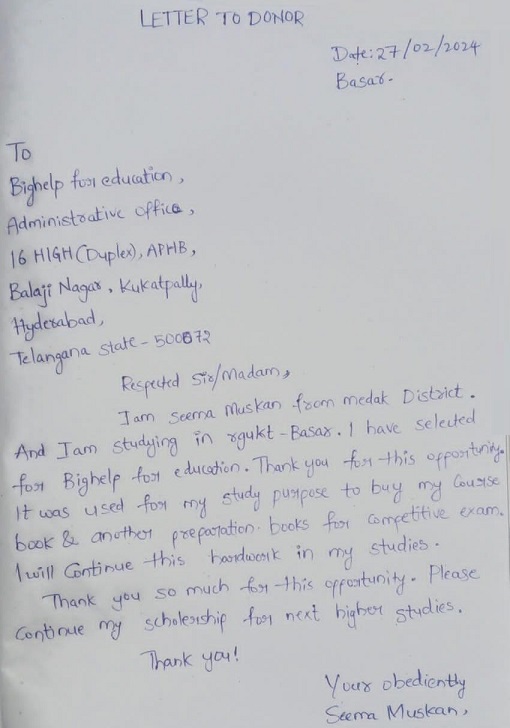 LETTER TO DONOR
Date: 27/02/2024
Basar.
To
Bighelp for education,
Administrative office,
16 HIGH (Duplex), APHB,
Balaji Nagar, Kukatpally,
Hyderabad,
Telangana state - 500072
Respected Sir/Madam,
I am Seema Muskan from medak District.
And I am studying in rgukt - Basar. I have selected
for Bighelp for education. Thank you for this opportunity.
It was used for my study purpose to buy my Course
book & another preparation books for competitive exam.
I will Continue this hardwork in my studies.
Thank you so much for this opportunity. Please
Continue my scholership for next higher studies.
Thank you!
Your obediently
Seema Muskan,